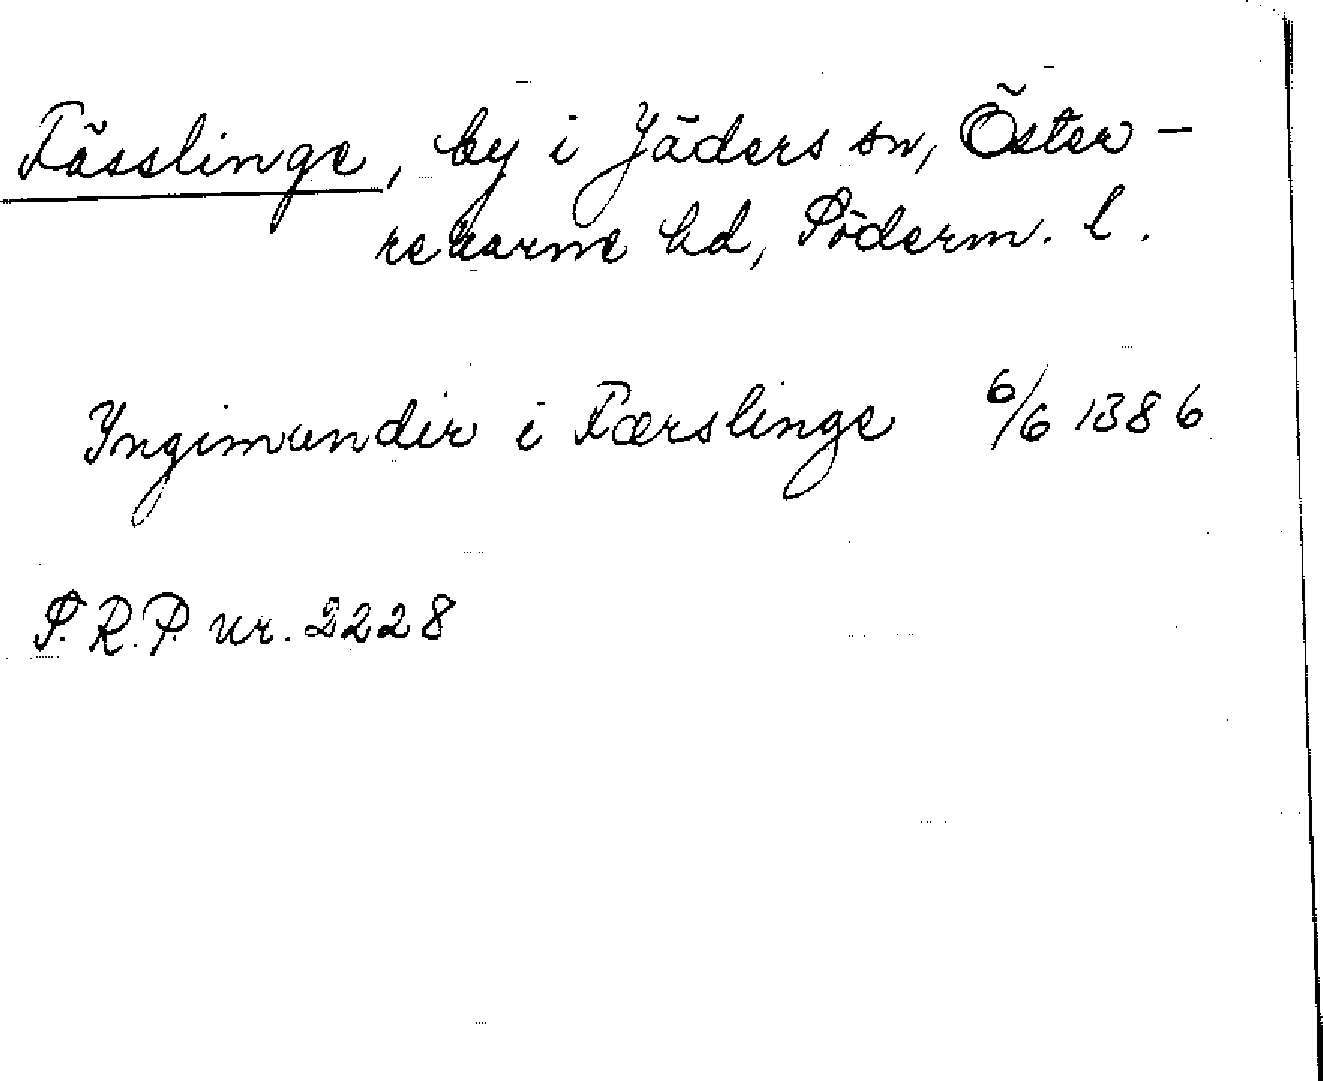 Fässlinge, by i Jäders sn, Öster-
rekarne hd, Söderm. l.
Yngimundir i Færslinge 6/6 1386
S.R.P. nr. 2228